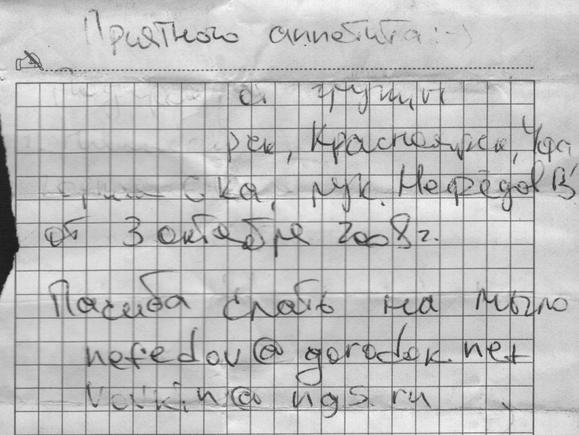 Приятного аппетита :-)
группы
рск, Красноярск, Уфа
СКА, рук. Нефёдов В
от 3 октября 2008 г.
Пасиба слать на мыло
nefedov@gorodok.net
volkin@ngs.ru